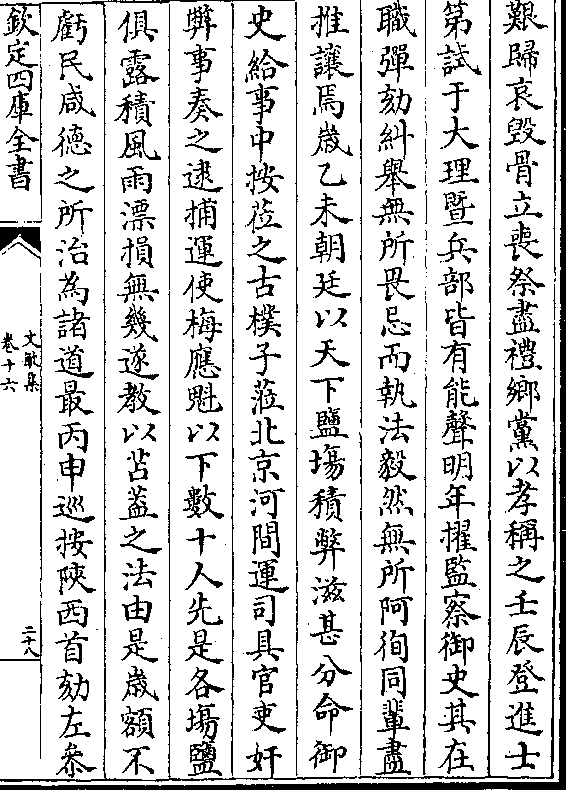 艱歸哀毀骨立喪祭盡禮鄉黨以孝稱之壬辰登進士
第試于大理暨兵部皆有能聲明年擢監察御史其在
職彈劾糾舉無所畏忌而執法毅然無所阿徇同輩盡
推讓焉歲乙未朝廷以天下鹽場積弊滋甚分命御
史給事中按莅之古樸子莅北京河間運司具官吏奸
弊事奏之逮捕運使梅應魁以下數十人先是各場鹽
俱露積風雨漂損無幾遂教以苫蓋之法由是歲額不
虧民咸德之所治為諸道最丙申巡按陝西首劾左叅
欽定四庫全書
文敏集
卷十六
二十八